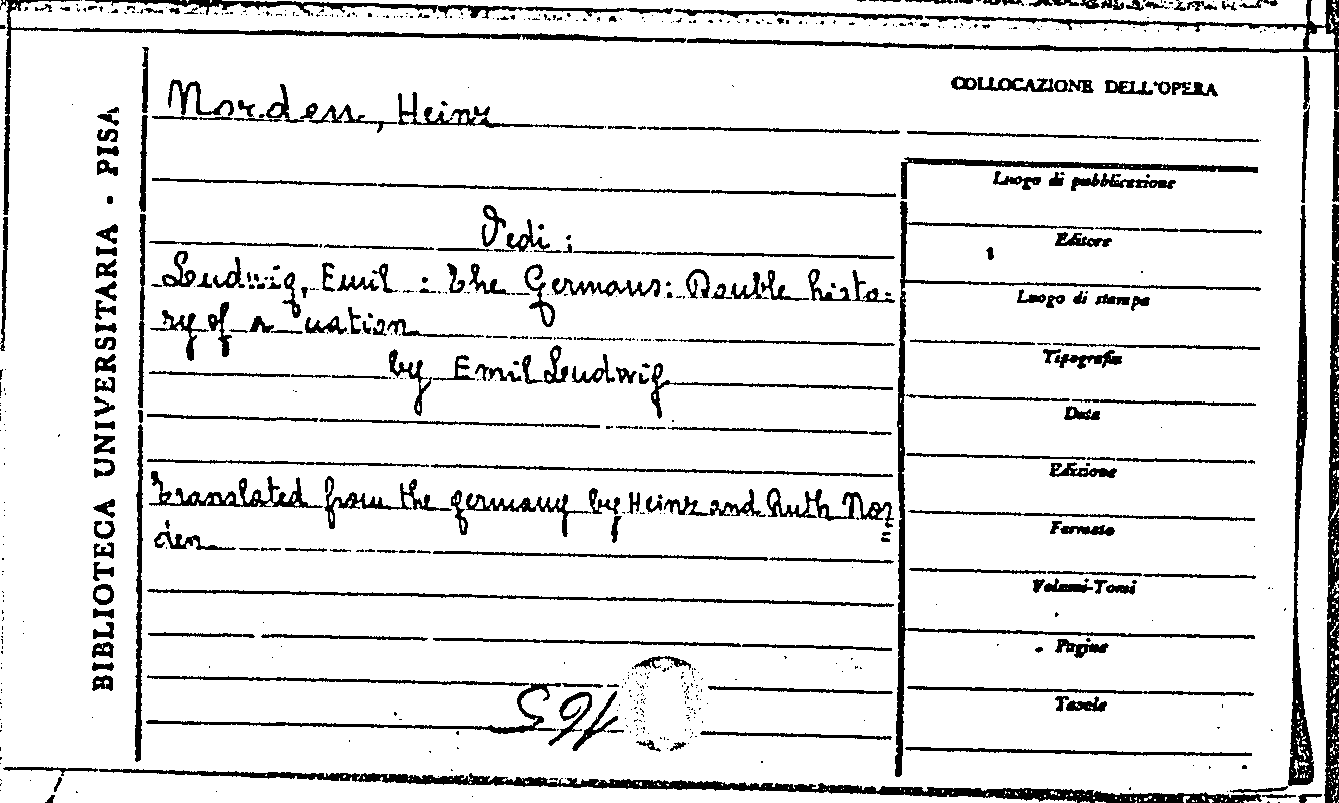 BIBLIOTECA UNIVERSITARIA - PISA
Norden, Heinz
Vedi :
Ludwig, Emil : The Germans: Double histo-
ry of a nation
by Emil Ludwig
Translated from the germany by Heinz and Ruth Nor=
den
COLLOCAZIONE DELL'OPERA
Luogo di pubblicazione
Editore
Luogo di stampa
Tipografia
Data
Edizione
Formato
Volumi-Tomi
Pagine
Tavole